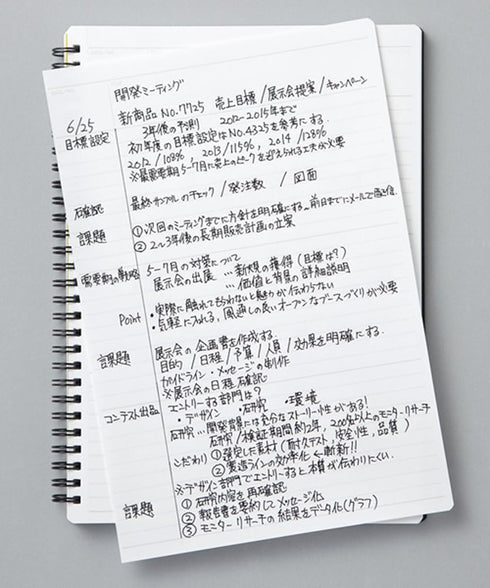 開発ミーティング
新商品 No.7725 売上目標/展示会提案/キャンペーン
6/25 3年後の判別 2012-2015年まで
目標設定 初年度の目標設定はNo.4325を参考にする.
2012/103%, 2013/115%, 2014/128%
※最需要期5-7月に売上のピークを迎えられる工夫が必要
確認 最終サンプルのチェック/発注数 / 図面
課題 ①次回のミーティングまでに方針を明確にする→前日までにメールで配信.
②2〜3年後の長期販売計画の立案
需要期の戦略 5-7月の対策について
展示会の出展 …新規の獲得(目標は?)
…価値と背景の詳細説明
Point ・実際に触れてもらわないと魅力が伝わらない
・気軽に入れる,風通しの良いオープンなブースづくりが必要
課題 展示会の企画書を作成する.
目的/日程/予算/人員/効果を明確にする.
ガイドライン・メッセージの制作
※展示会の日程確認
コンテスト出品 エントリーする部門は?
・デザイン ・研究 ・環境
研究…開発背景には充分なストーリー性がある!
研究/検証期間約2年,200名以上のモニターリサーチ
こだわり ①選定した素材(耐久テスト,安全性,品質)
②製造ラインの効率化 ← 斬新!!
※デザイン部門でエントリーすると本質が伝わりにくい.
課題 ①研究内容を再確認
②報告書を要約してメッセージ化
③モニターリサーチの結果をデータ化(グラフ)